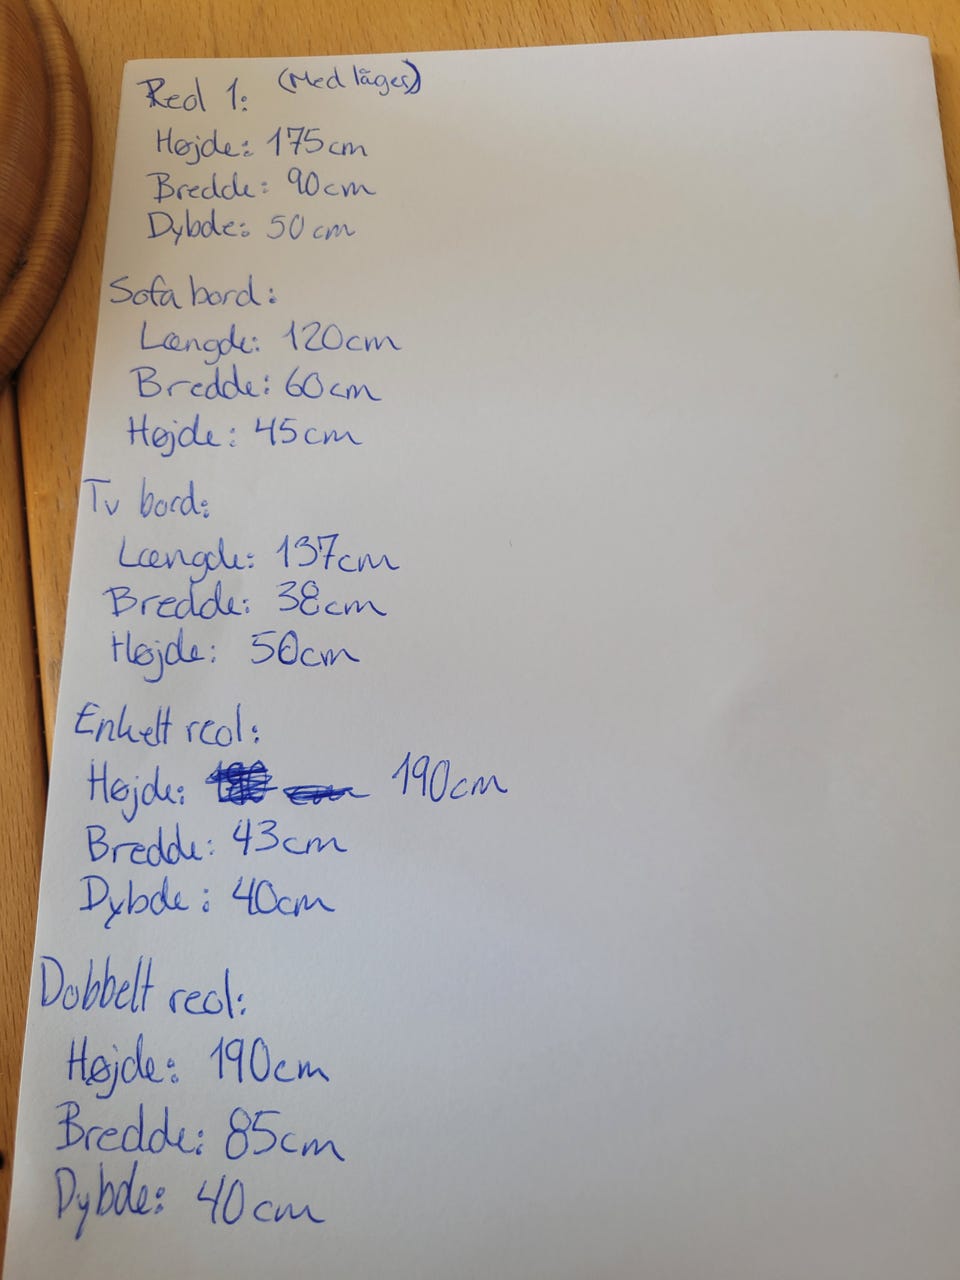 Reol 1: (Med låger)
Højde: 175cm
Bredde: 90cm
Dybde: 50cm
Sofa bord:
Længde: 120cm
Bredde: 60cm
Højde: 45cm
Tv bord:
Længde: 137cm
Bredde: 38cm
Højde: 50cm
Enkelt reol:
Højde: 190cm
Bredde: 43cm
Dybde: 40cm
Dobbelt reol:
Højde: 190cm
Bredde: 85cm
Dybde: 40cm